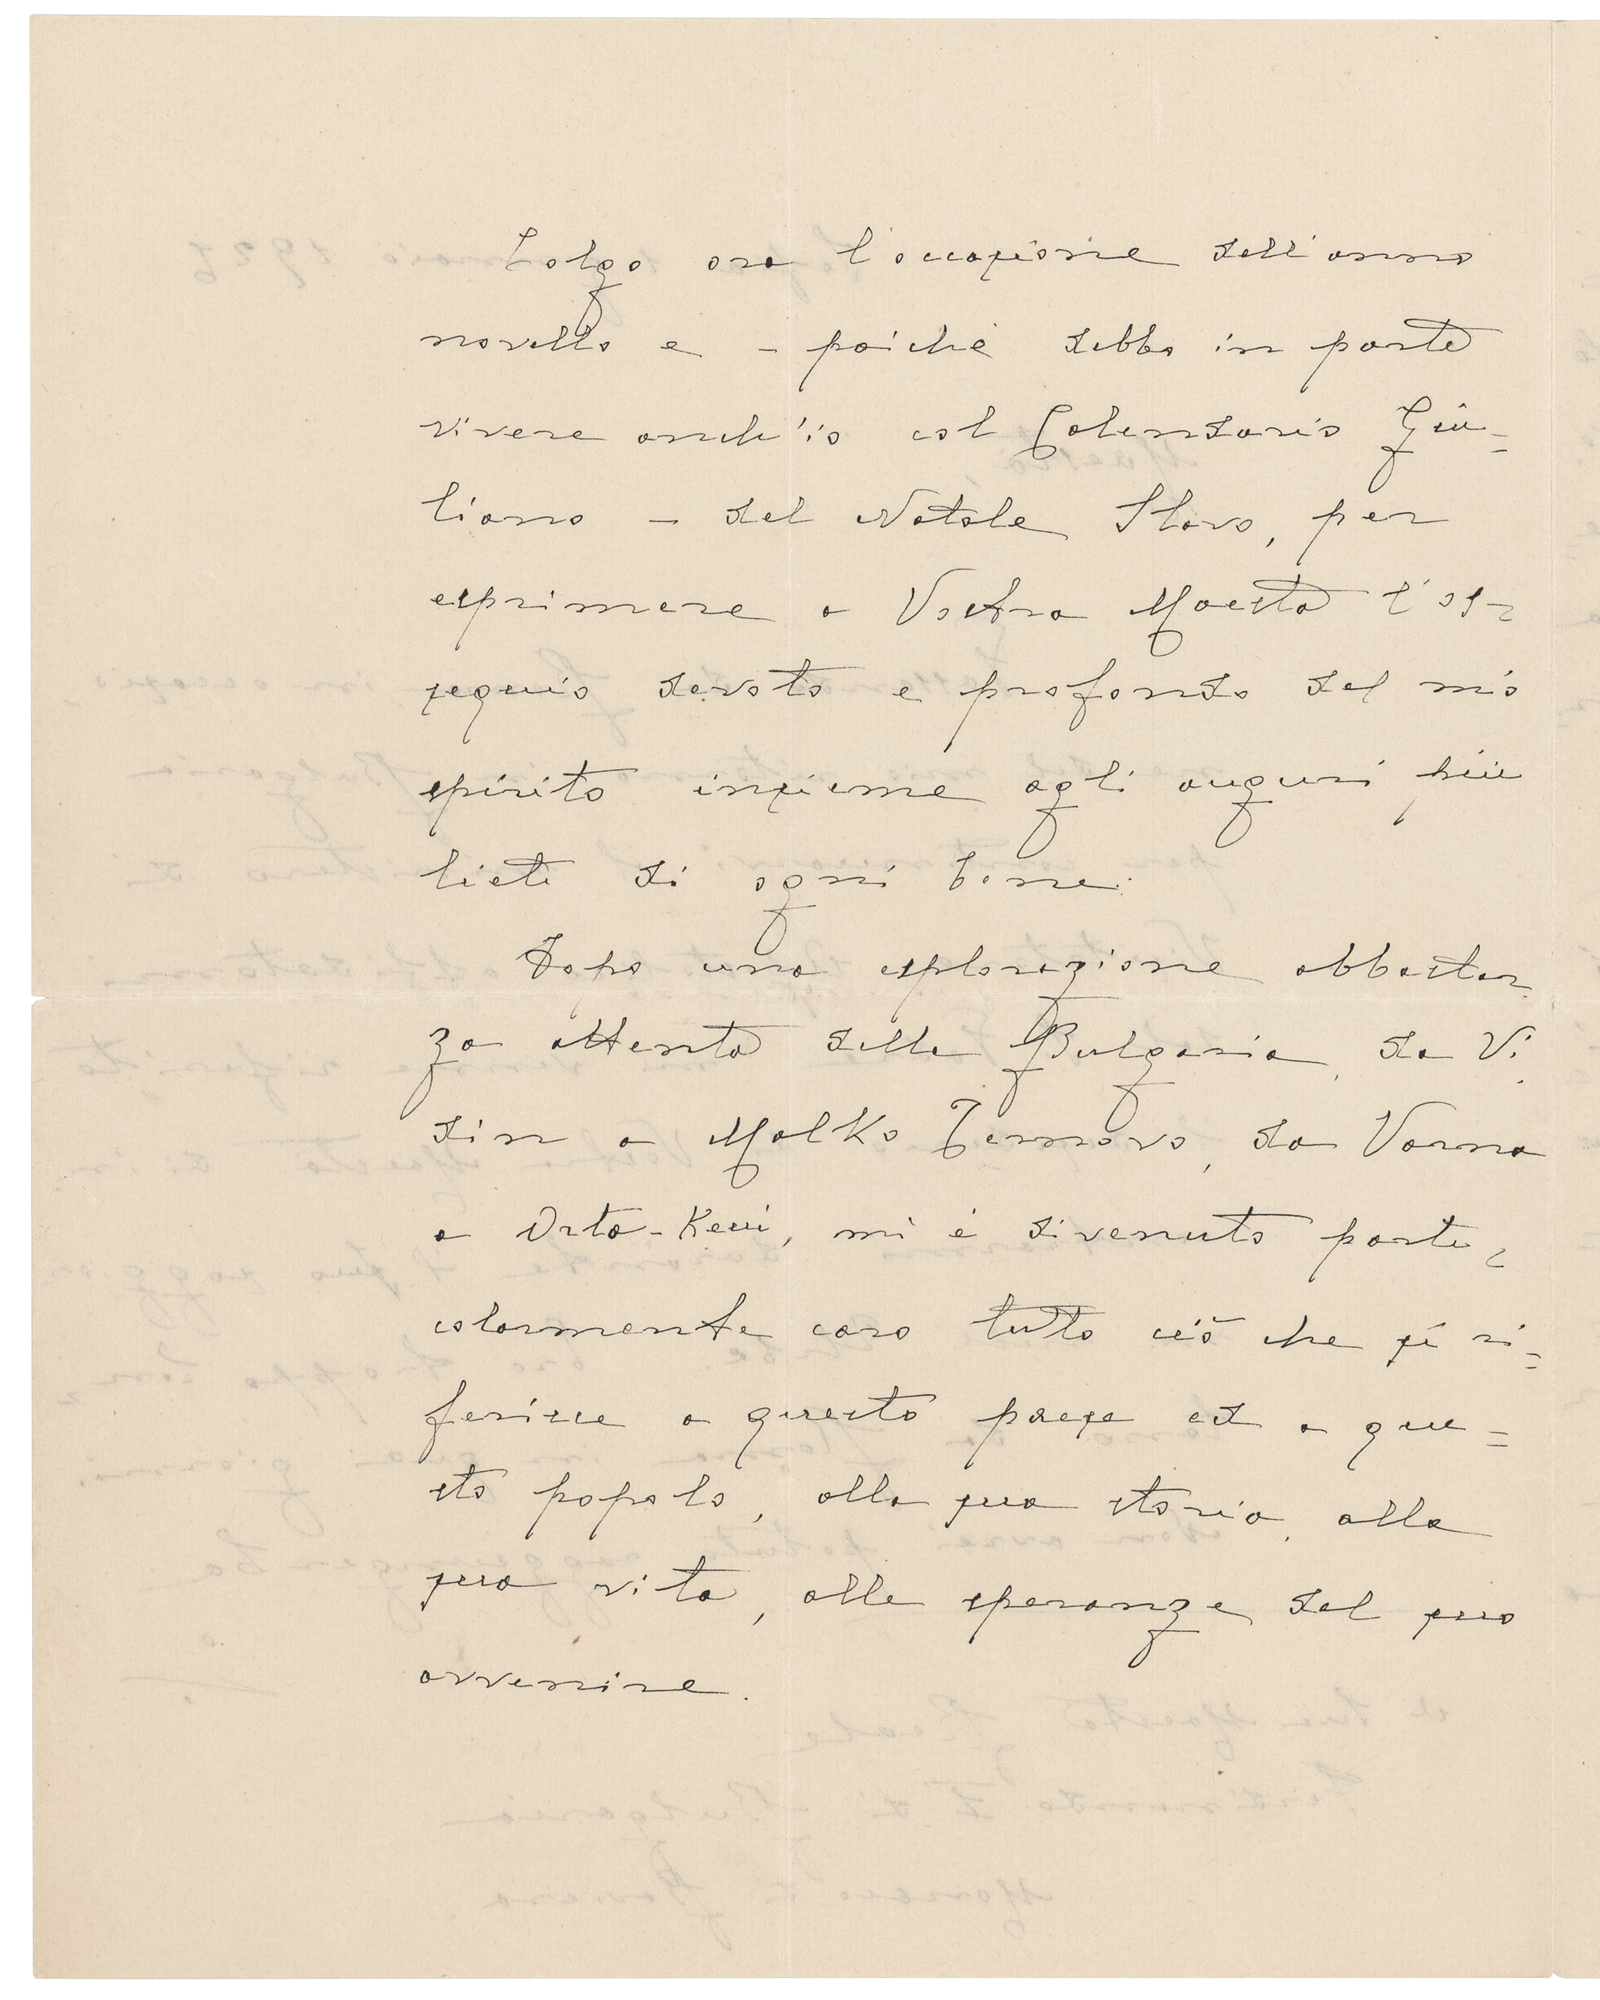 Colgo ora l'occasione dell'anno
novello e – poichè debbo in parte
vivere anch'io col Calendario Giu=
liano – del Natale Slavo, per
esprimere a Vostra Maestà l'os-
sequio devoto e profondo del mio
spirito insieme agli auguri più
lieti di ogni bene.
Dopo una esplorazione abbastan
za attenta della Bulgaria, da Vi.
din a Malko Ternovo, da Varna
a Orta-Keui, mi è divenuto parti-
colarmente caro tutto ciò che si ri=
ferisce a questo paese ed a que=
sto popolo, alla sua storia, alla
sua vita, alle speranze del suo
avvenire.